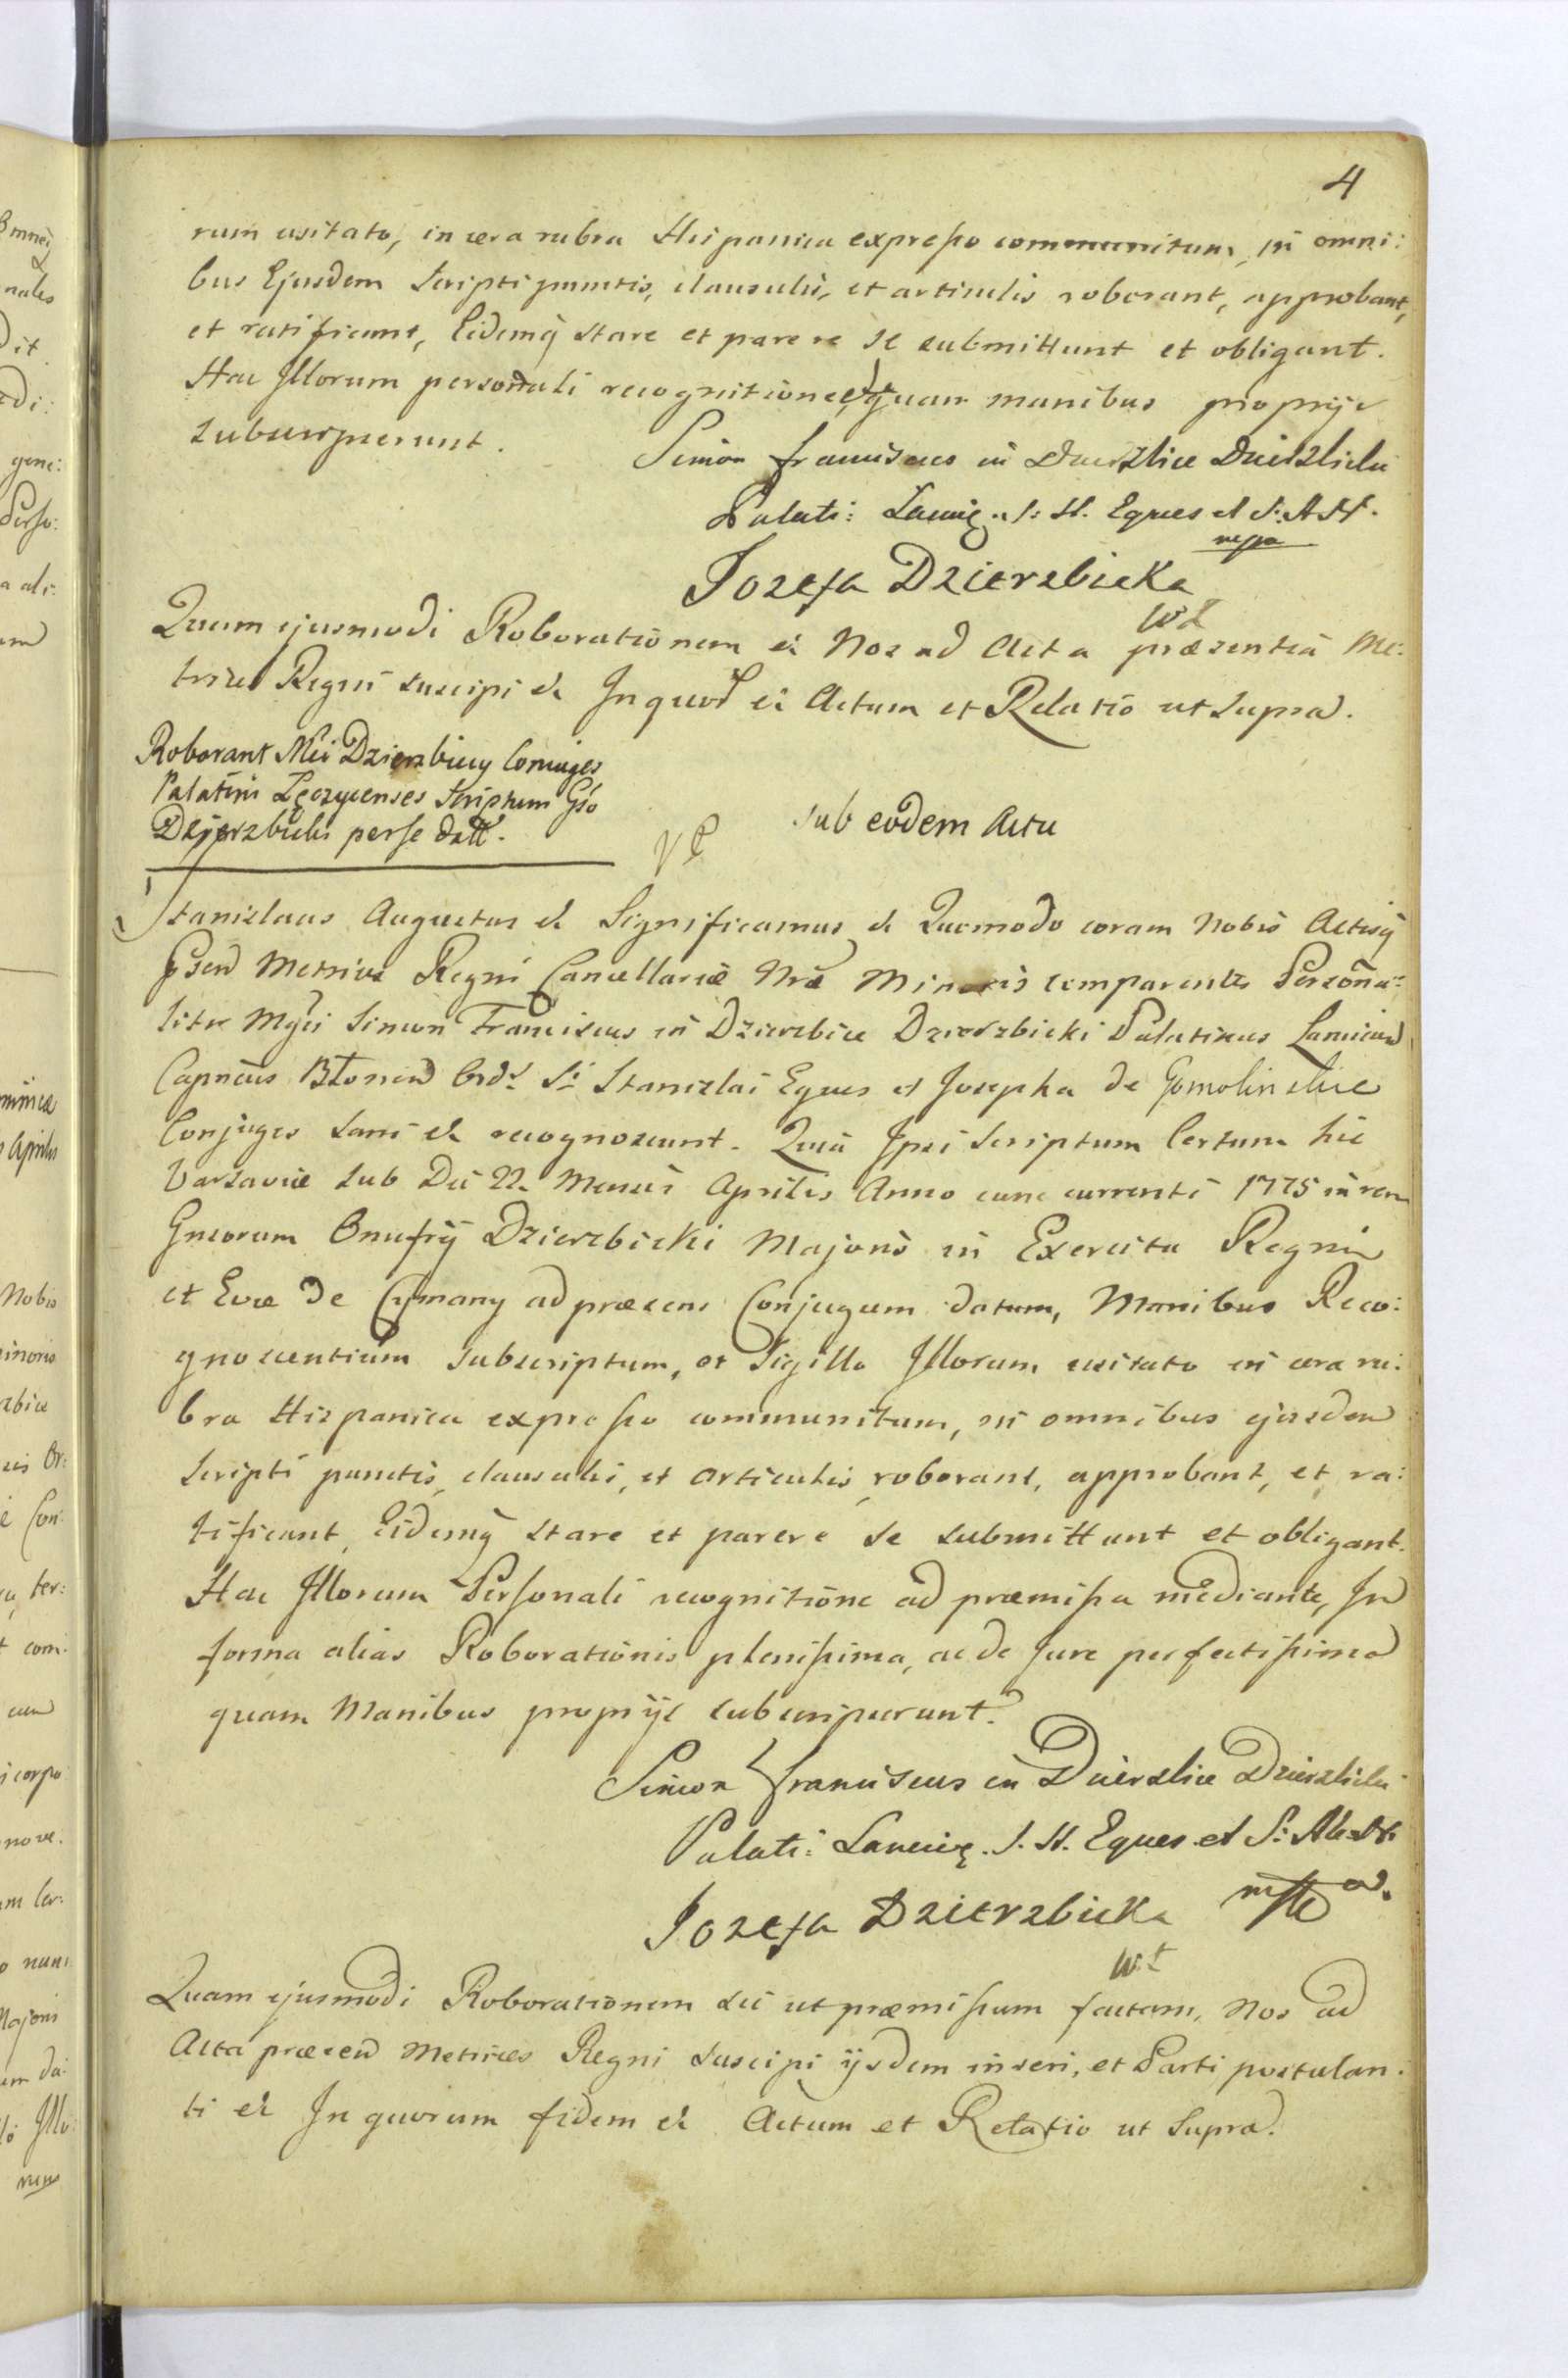 4
rum usitato, in cera rubra Hispanica expresso communitum, in omni:
bus Ejusdem Scripti punctis, clausulis, et articulis roborant, approbant,
et ratificant, Eidemq stare et parere se submittunt et obligant.
Hac Illorum personali recognitione, quam manibus proprijs
subscripserunt.
Simon Franciscus in Dzierzbice Dzierzbicki
Palati: Lancic. S: St. Eques et S: A N.
mpa
Jozefa Dzierzbicka
w.Ł
Quam ejusmodi Roborationem et Nos ad Acta præsentia Me:
trices Regni suscipi et In quor et Actum et Relatio ut supra.
Roborant Mci Dzierzbiccy Conjuges
Palatini Łęczycenses Scriptum Gso
Dzierzbicki per se datt.
sub eodem Actu
Stanislaus Augustus et Significamus et Quomodo coram Nobis Actisq
Psend Metrices Regni Cancellariæ Nræ Minoris comparentes Persona:
liter Mgci Simon Franciscus in Dzierzbice Dzierzbicki Palatinus Lancicien
Capneus Błonen Ord. Sti Stanislai Eques et Josepha de Gomolinskie
Conjuges sani et recognoscunt. Quia Ipsi Scriptum Certum hic
Varsaviæ sub Die 22. Mensis Aprilis Anno nunc currenti 1775 in rem
Gnsorum Onufrij Dzierzbicki Majoris in Exercitu Regni
et Evæ de Cymany ad præsens Conjugum datum, Manibus Reco:
gnoscentium subscriptum, et Sigillo Illorum usitato in cera ru:
bra Hispanica expresso communitum, in omnibus ejusdem
Scripti punctis, clausulis, et Articulis roborant, approbant, et ra:
tificant, Eidemq stare et parere se submittunt et obligant.
Hac Illorum Personali recognitione ad præmissa mediante, In
forma alias Roborationis plenissima, ac de Jure perfectissima
quam Manibus proprijs subscripserunt.
Simon Franciscus in Dzierzbice Dzierzbicki
Palati: Lancic. S. St. Eques et S: Al: N.
Jozefa Dzierzbicka
w.Ł
Quam ejusmodi Roborationem sic ut præmissum factam, Nos ad
Acta præsen Metrices Regni suscipi ijsdem inseri, et Parti postulan:
ti et In quorum fidem et Actum et Relatio ut Supra.